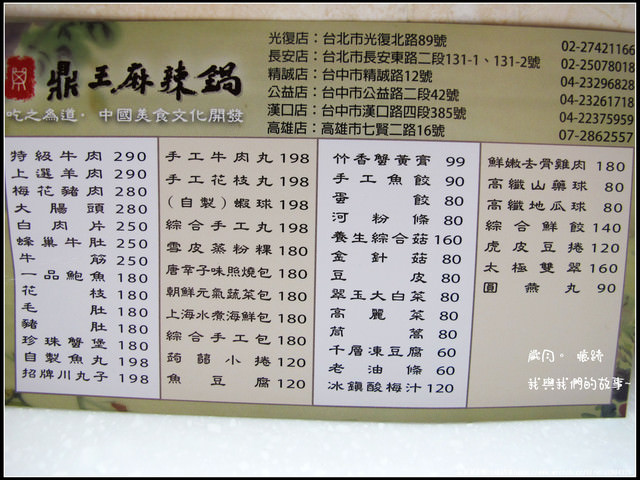 鼎王麻辣鍋
吃之為道·中國美食文化開發
光復店：台北市光復北路89號 02-27421166
長安店：台北市長安東路二段131-1、131-2號 02-25078018
精誠店：台中市精誠路12號 04-23296828
公益店：台中市公益路二段42號 04-23261718
漢口店：台中市漢口路四段385號 04-22375959
高雄店：高雄市七賢二路16號 07-2862557
特級牛肉 290
上選羊肉 290
梅花豬肉 280
大腸頭 280
白肉片 250
蜂巢牛肚 250
牛筋 250
一品鮑魚 180
花枝 180
毛肚 180
豬肚 180
珍珠蟹堡 180
自製魚丸 198
招牌川丸子 198
手工牛肉丸 198
手工花枝丸 198
（自製）蝦球 198
綜合手工丸 198
雪皮蒸粉粿 180
唐辛子味照燒包 180
朝鮮元氣蔬菜包 180
上海水煮海鮮包 180
綜合手工包 180
蒟蒻小捲 120
魚豆腐 120
竹香蟹黃膏 99
手工魚餃 90
蛋餃 80
河粉條 80
養生綜合菇 160
金針菇 80
豆皮 80
翠玉大白菜 80
高麗菜 80
茼蒿 80
千層凍豆腐 60
老油條 60
冰鎮酸梅汁 120
鮮嫩去骨雞肉 180
高纖山藥球 80
高纖地瓜球 80
綜合鮮餃 140
虎皮豆捲 120
太極雙翠 160
圓燕丸 90
歲月。痕跡
我與我們的故事~